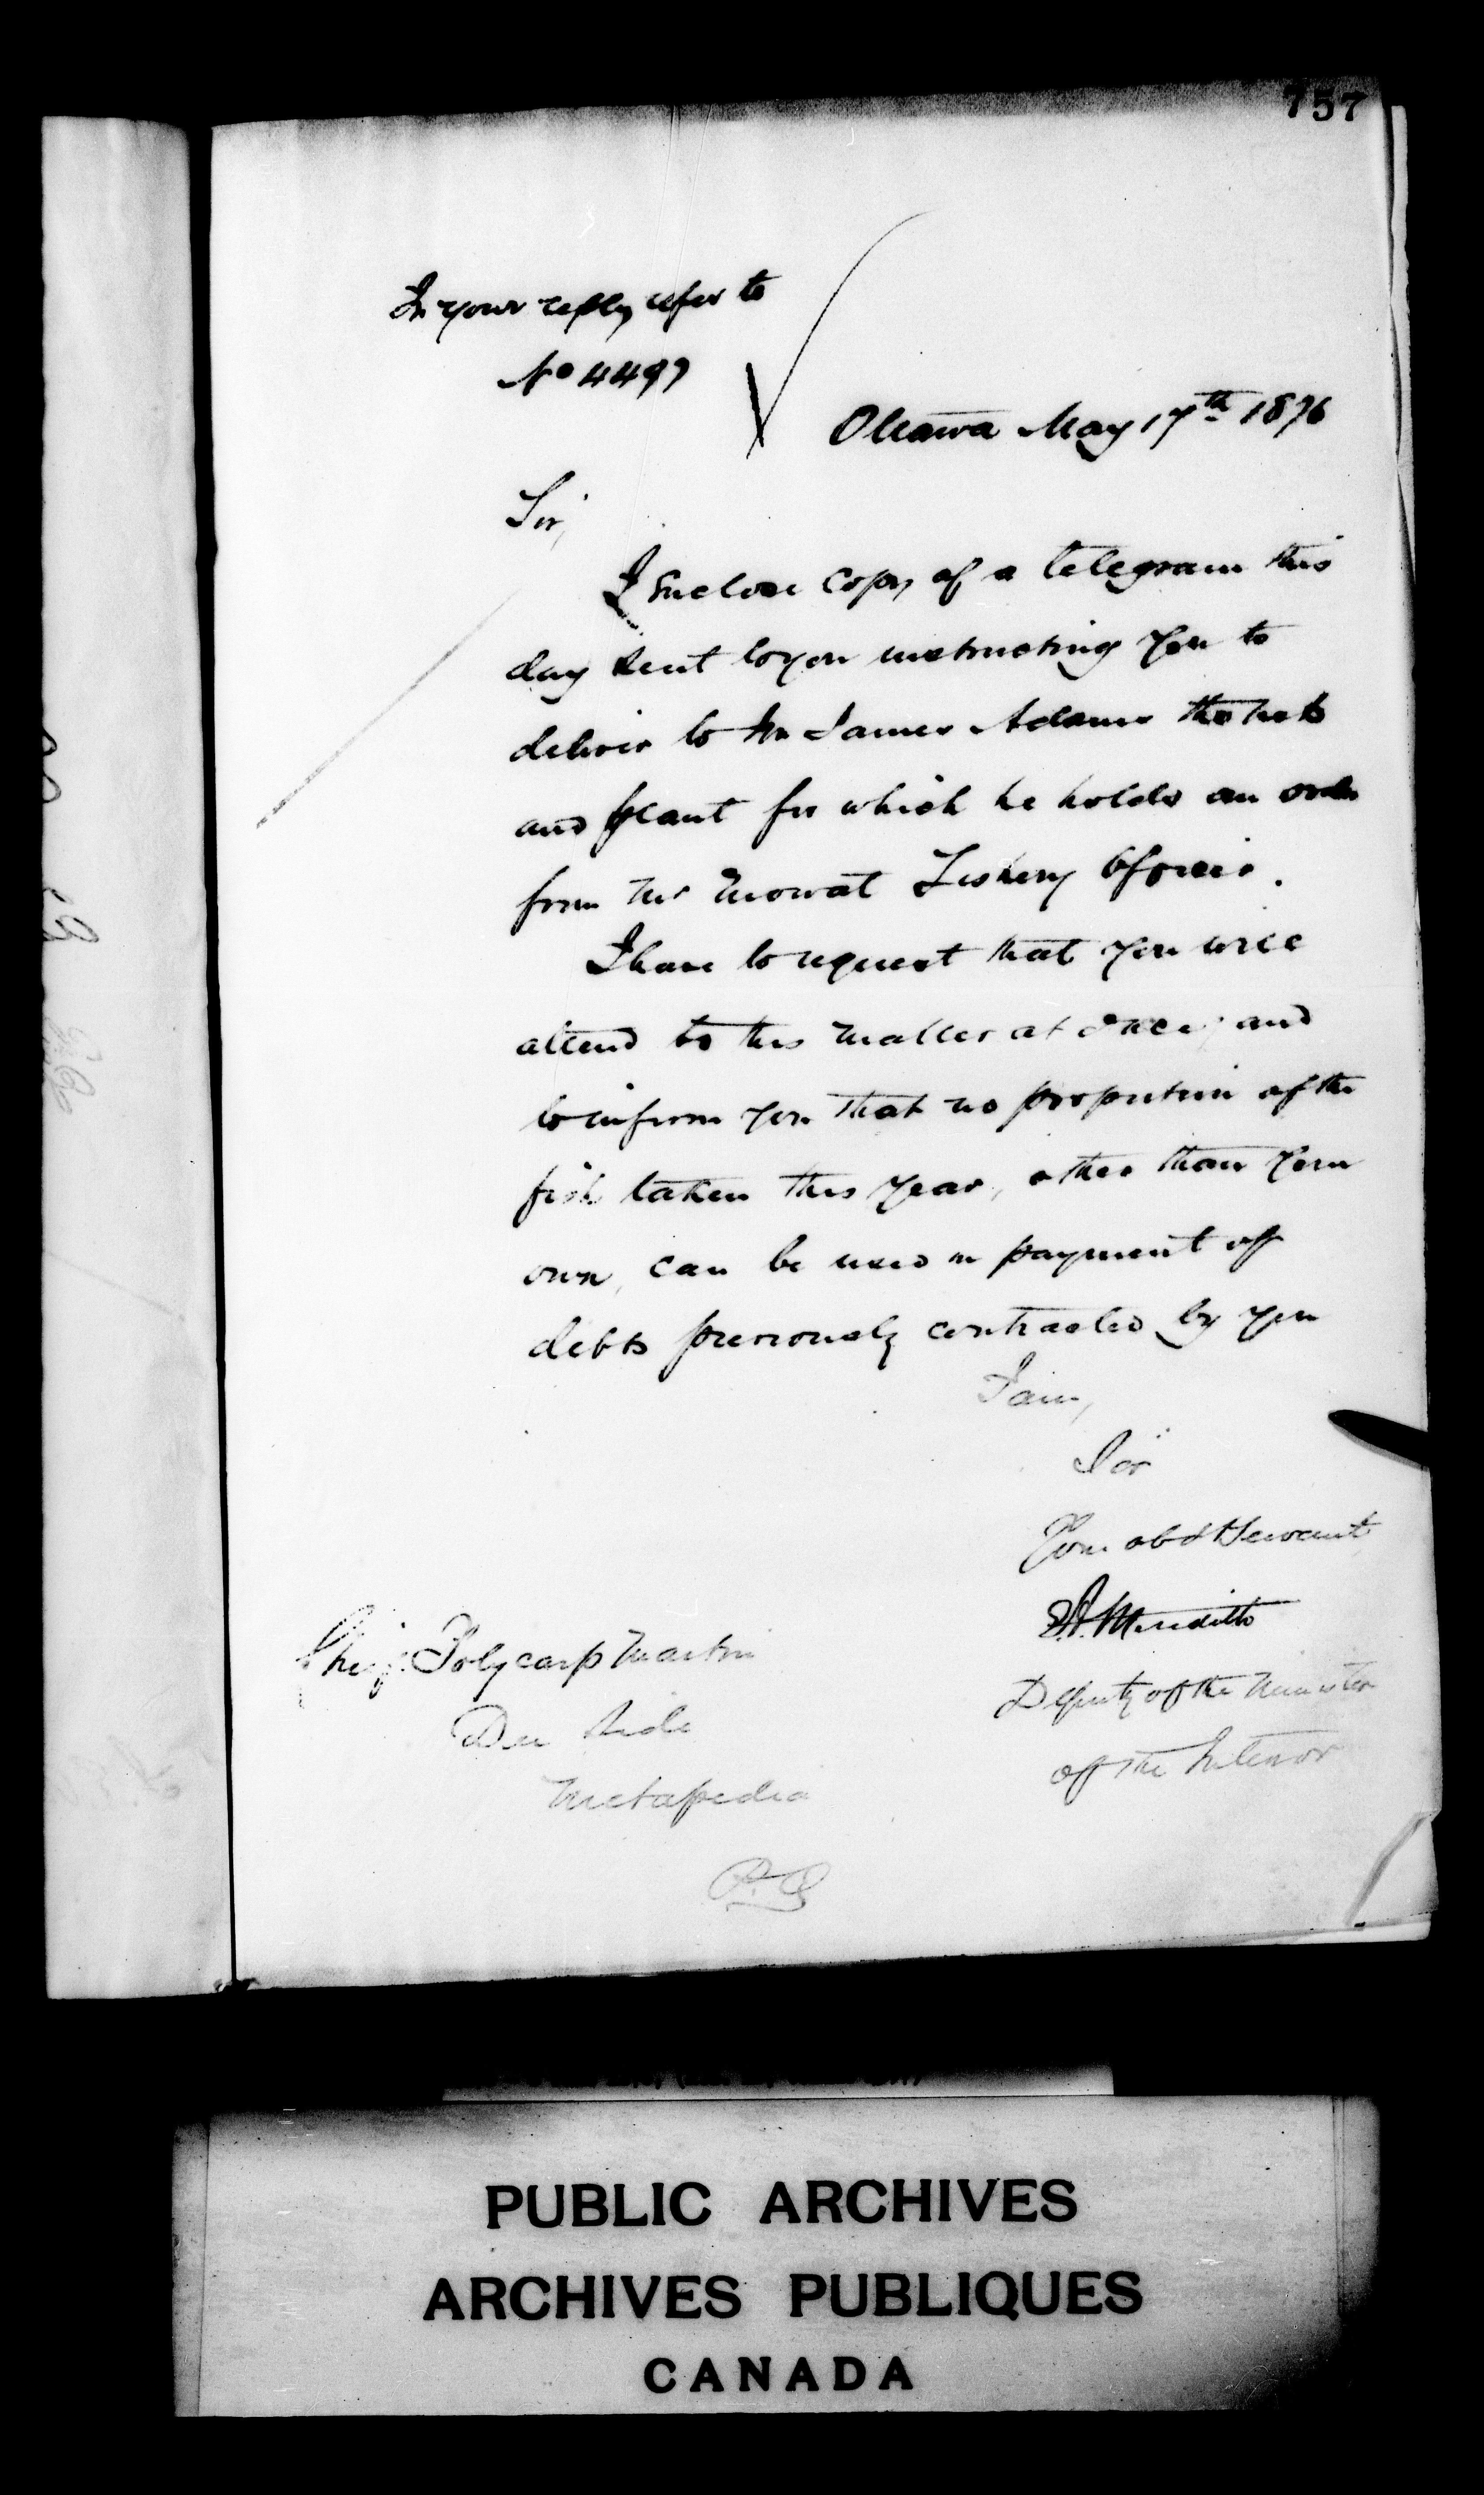 757
In your reply refer to
No 4497
Ottawa May 17th 1876
Sir,
I Enclose copy of a telegram this
day sent to you instructing you to
deliver to Mr James Adams the nets
and plant for which he holds an order
from Mr Mowat Fishery Officer.
I have to request that you will
attend to this matter at once, and
to inform you that no proportion of the
fish taken this year, other than your
own, can be used in payment of
debts previously contracted by you
I am,
Sir
Your obdt Servant
E.A. Meredith
Deputy of the Minister
of the Interior
Chief Polycarp Martin
Dee Side
Metapedia
P.Q
PUBLIC ARCHIVES
ARCHIVES PUBLIQUES
CANADA